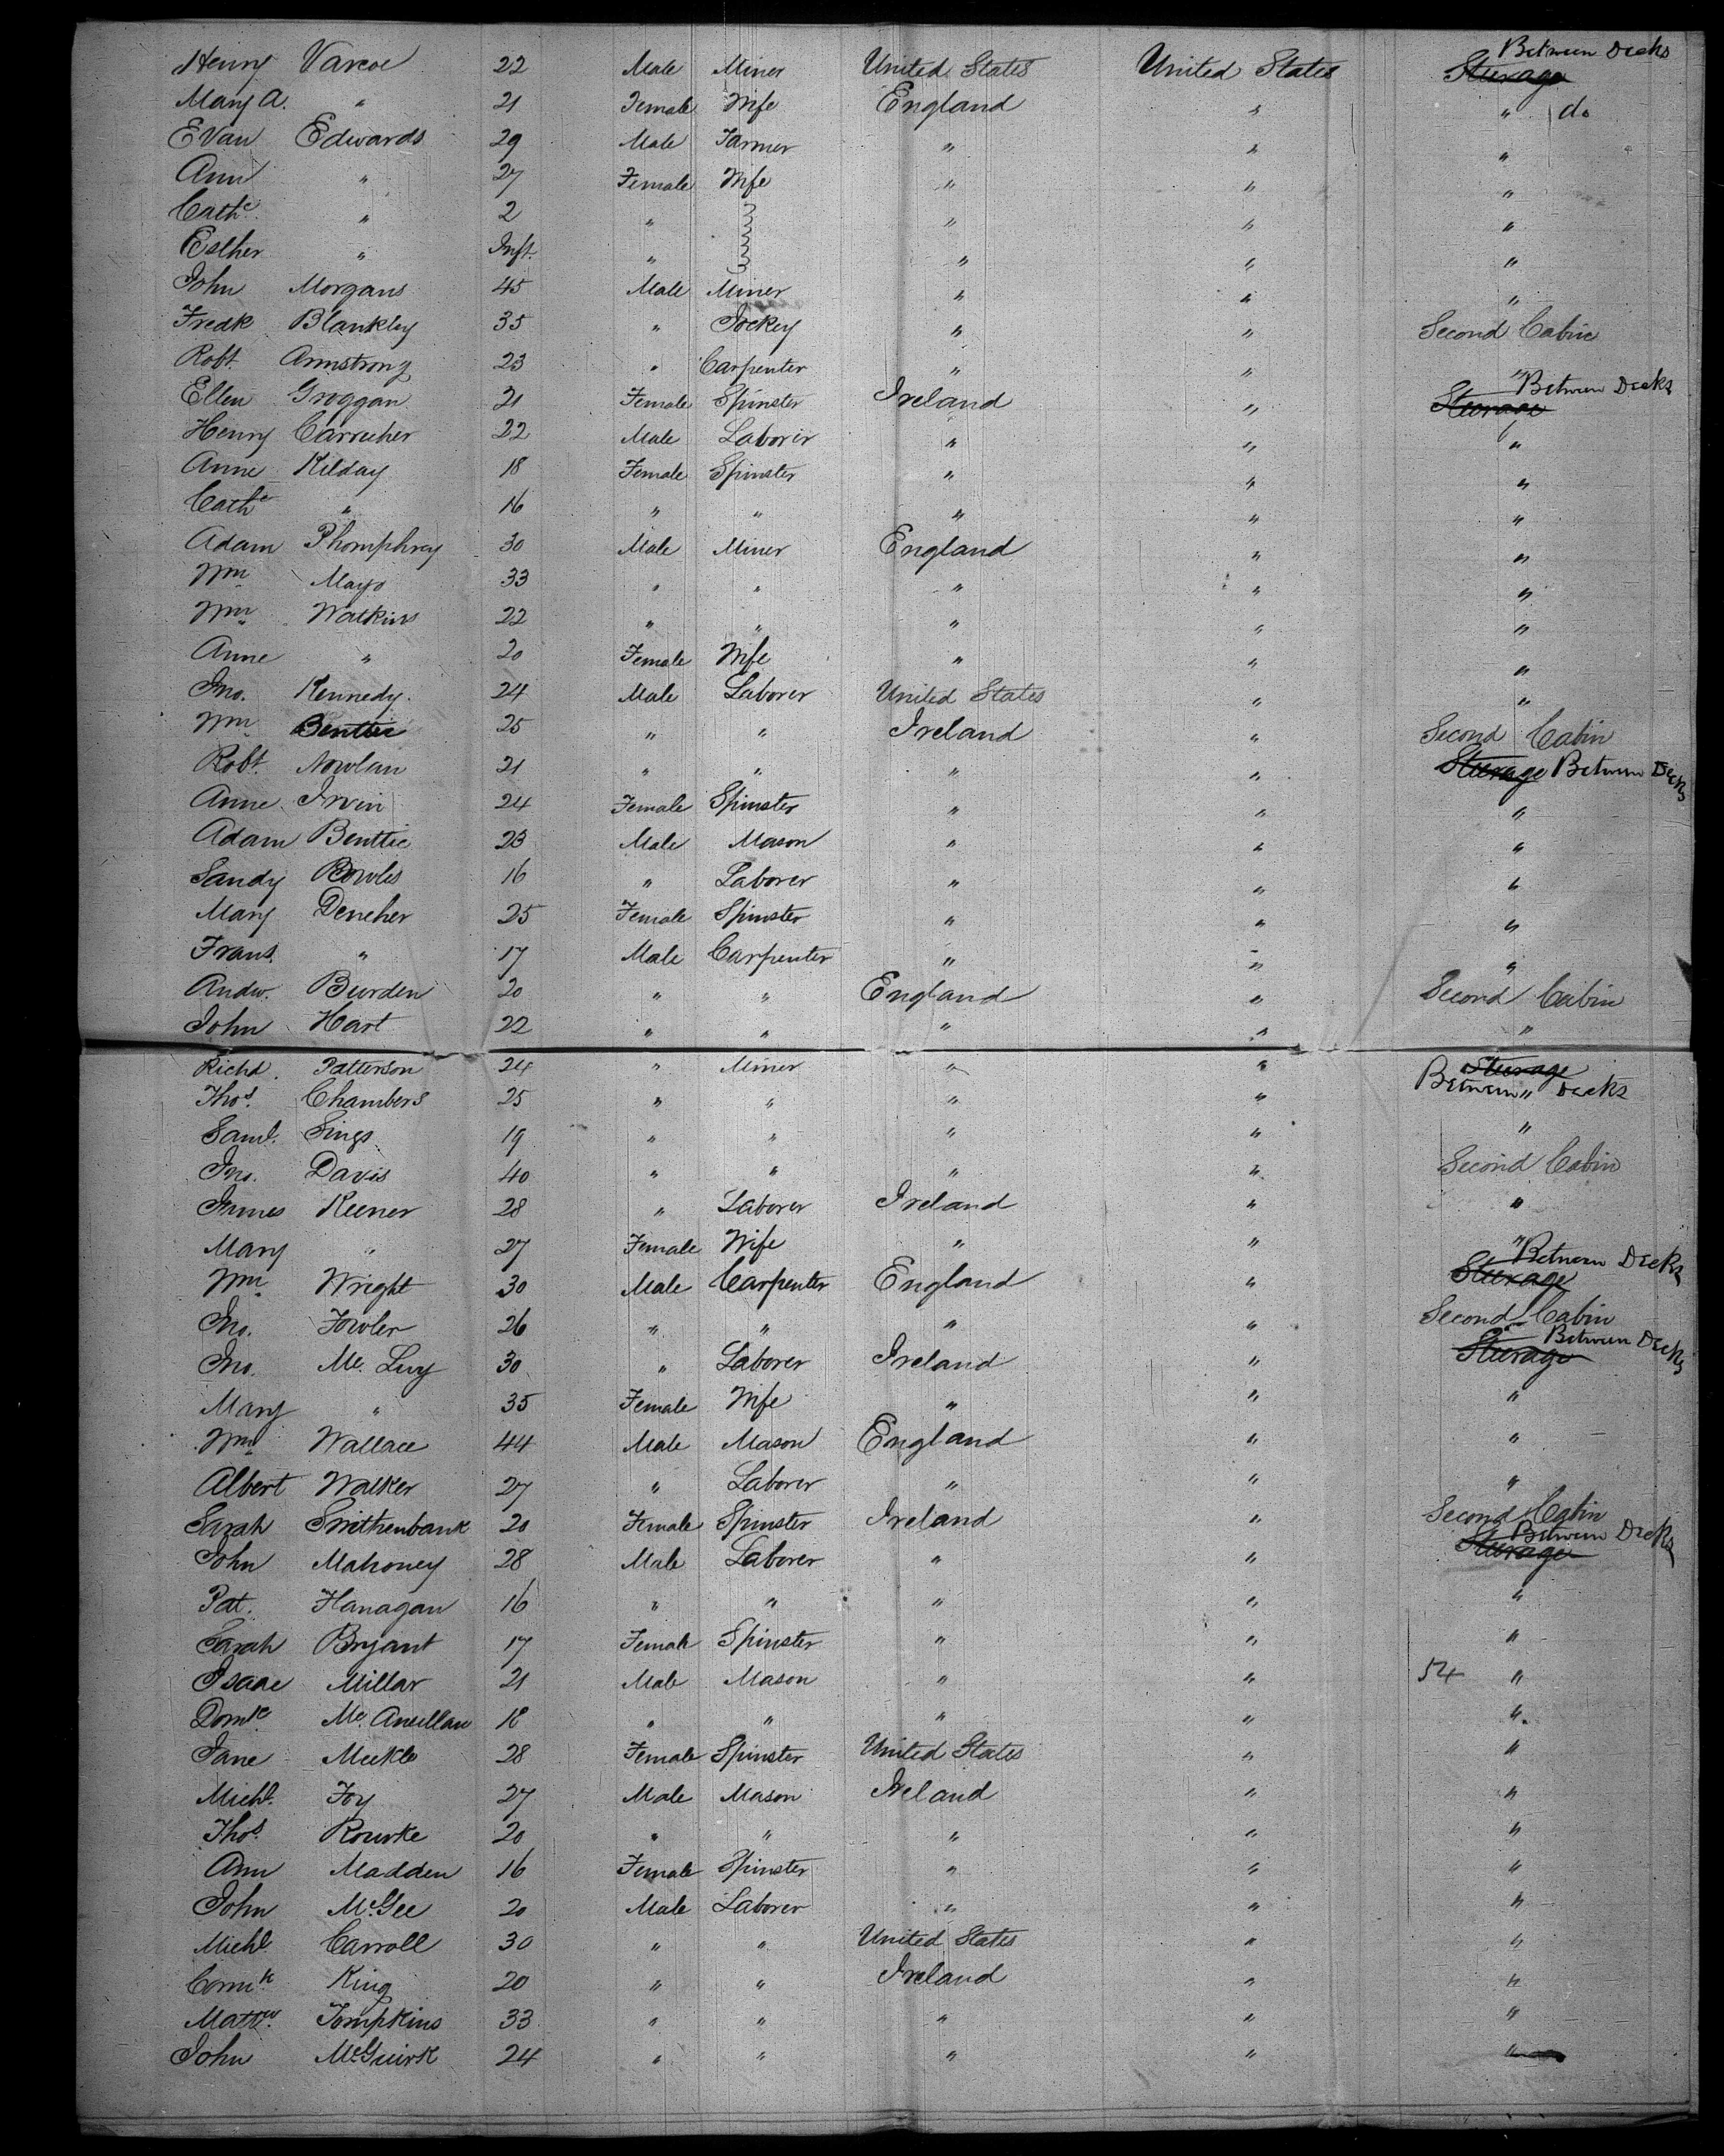 Henry Varcoe 22 Male Miner United States United States Between Decks Steerage
Mary A. " 21 Female Wife England " " do
Evan Edwards 29 Male Farmer " " "
Ann " 27 Female Wife " " "
Cathe " 2 " " " "
Esther " Inft. " " " "
John Morgans 45 Male Miner " " "
Fredk Blankley 35 " Jockey " " Second Cabin
Robt. Armstrong 23 " Carpenter " " "
Ellen Groggan 21 Female Spinster Ireland " Between Decks Steerage
Henry Carrucher 22 Male Laborer " " "
Anne Kilday 18 Female Spinster " " "
Cathe " 16 " " " " "
Adam Phomphrey 30 Male Miner England " "
Wm Mayo 33 " " " " "
Wm Watkins 22 " " " " "
Anne " 20 Female Wife " " "
Jno. Kennedy. 24 Male Laborer United States " "
Wm Benttie 25 " " Ireland " Second Cabin
Robt. Nowlan 21 " " " " Steerage Between Decks
Anne Irvin 24 Female Spinster " " "
Adam Benttie 23 Male Mason " " "
Sandy Bowles 16 " Laborer " " "
Mary Deneher 25 Female Spinster " " "
Frans. " 17 Male Carpenter " " "
Andw. Burden 20 " " England " Second Cabin
John Hart 22 " " " " "
Richd. Patterson 24 " Miner " " Steerage
Thos. Chambers 25 " " " " Between " Decks
Saml. Sings 19 " " " " "
Jno. Davis 40 " " " " Second Cabin
James Keener 28 " Laborer Ireland " "
Mary " 27 Female Wife " " "
Wm Wright 30 Male Carpenter England " Between Decks Steerage
Jno. Fowler 26 " " " " Second Cabin
Jno. Mc. Livy 30 " Laborer Ireland " Between Decks Steerage
Mary " 35 Female Wife " " "
Wm Wallace 44 Male Mason England " "
Albert Walker 27 " Laborer " " "
Sarah Smithenbank 20 Female Spinster Ireland " Second Cabin
John Mahoney 28 Male Laborer " " Between Decks Steerage
Pat. Flanagan 16 " " " " "
Sarah Bryant 17 Female Spinster " " "
Isaac Millar 21 Male Mason " " 54 "
Domk. Mc. 18 " " " " "
Jane Meekle 28 Female Spinster United States " "
Michl. Foy 27 Male Mason Ireland " "
Thos. Rourke 20 " " " " "
Ann Madden 16 Female Spinster " " "
John McGee 20 Male Laborer " " "
Michl. Carroll 30 " " United States " "
Corn. King 20 " " Ireland " "
Mattw. Tompkins 33 " " " " "
John McGuirk 24 " " " " "